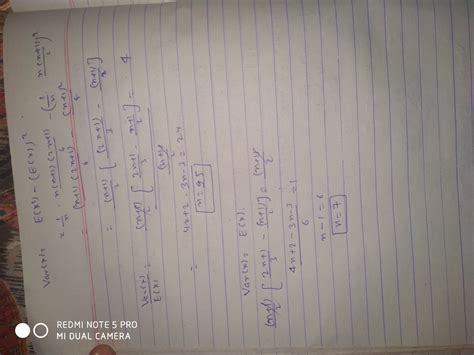 Var(x) = E(x²) - (E(x))²
= 1/n · n(n+1)(2n+1)/6 - (1/n n(n+1)/2)²
= (n+1)(2n+1)/6 - (n+1)²/4
= (n+1)/2 [ (2n+1)/3 - (n+1)/2 ]
Var(x)/E(x) = (n+1)/2 [ 2n+1/3 - n+1/2 ] / (n+1)/2 = 4
= 4n+2-3n-3 = 24
n=25
Var(x) = E(x)
(n+1)/2 [ 2n+1/3 - (n+1)/2 ] = (n+1)/2
4n+2-3n-3/6 = 1
n-1 = 6
n=7
REDMI NOTE 5 PRO
MI DUAL CAMERA